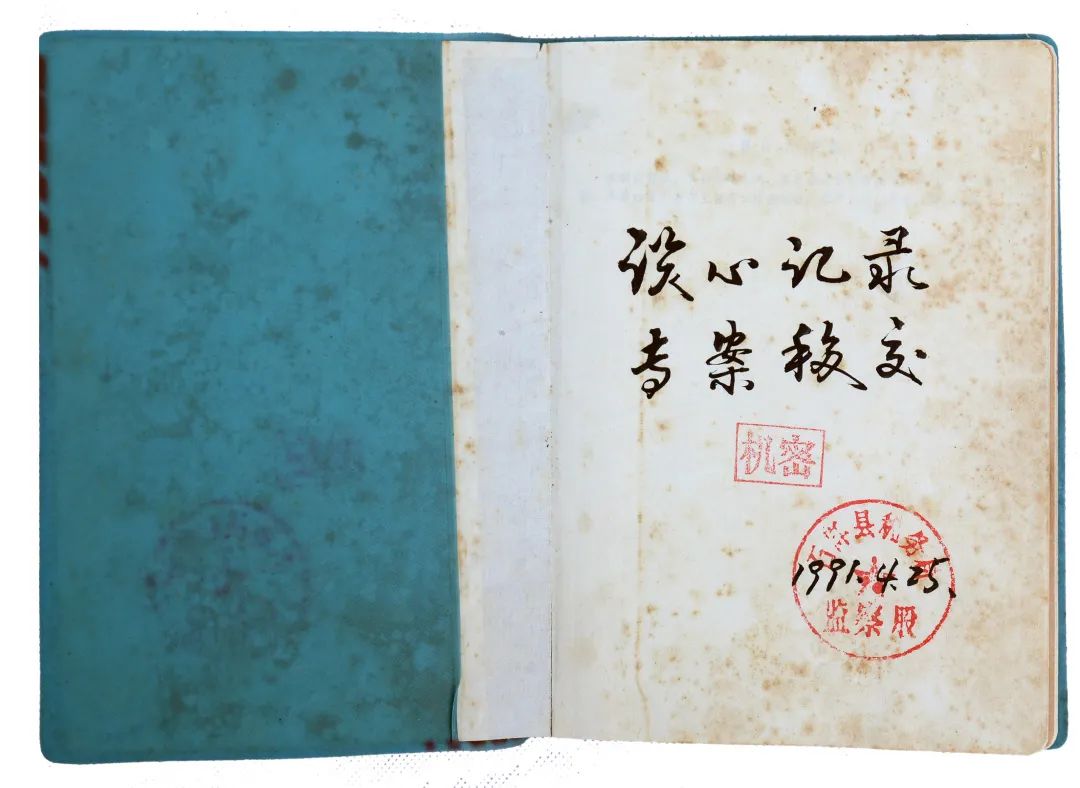 谈心记录
专案移交
机密
县税务局
1991.4.25.
监察股